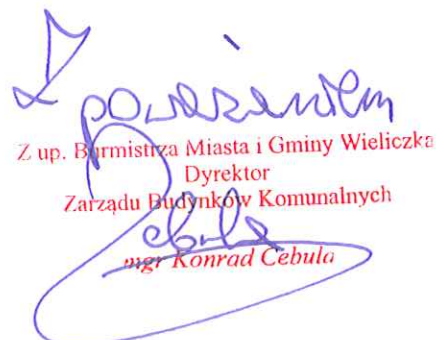 Z poważaniem
Z up. Burmistrza Miasta i Gminy Wieliczka
Dyrektor
Zarządu Budynków Komunalnych
Cebula
mgr Konrad Cebula